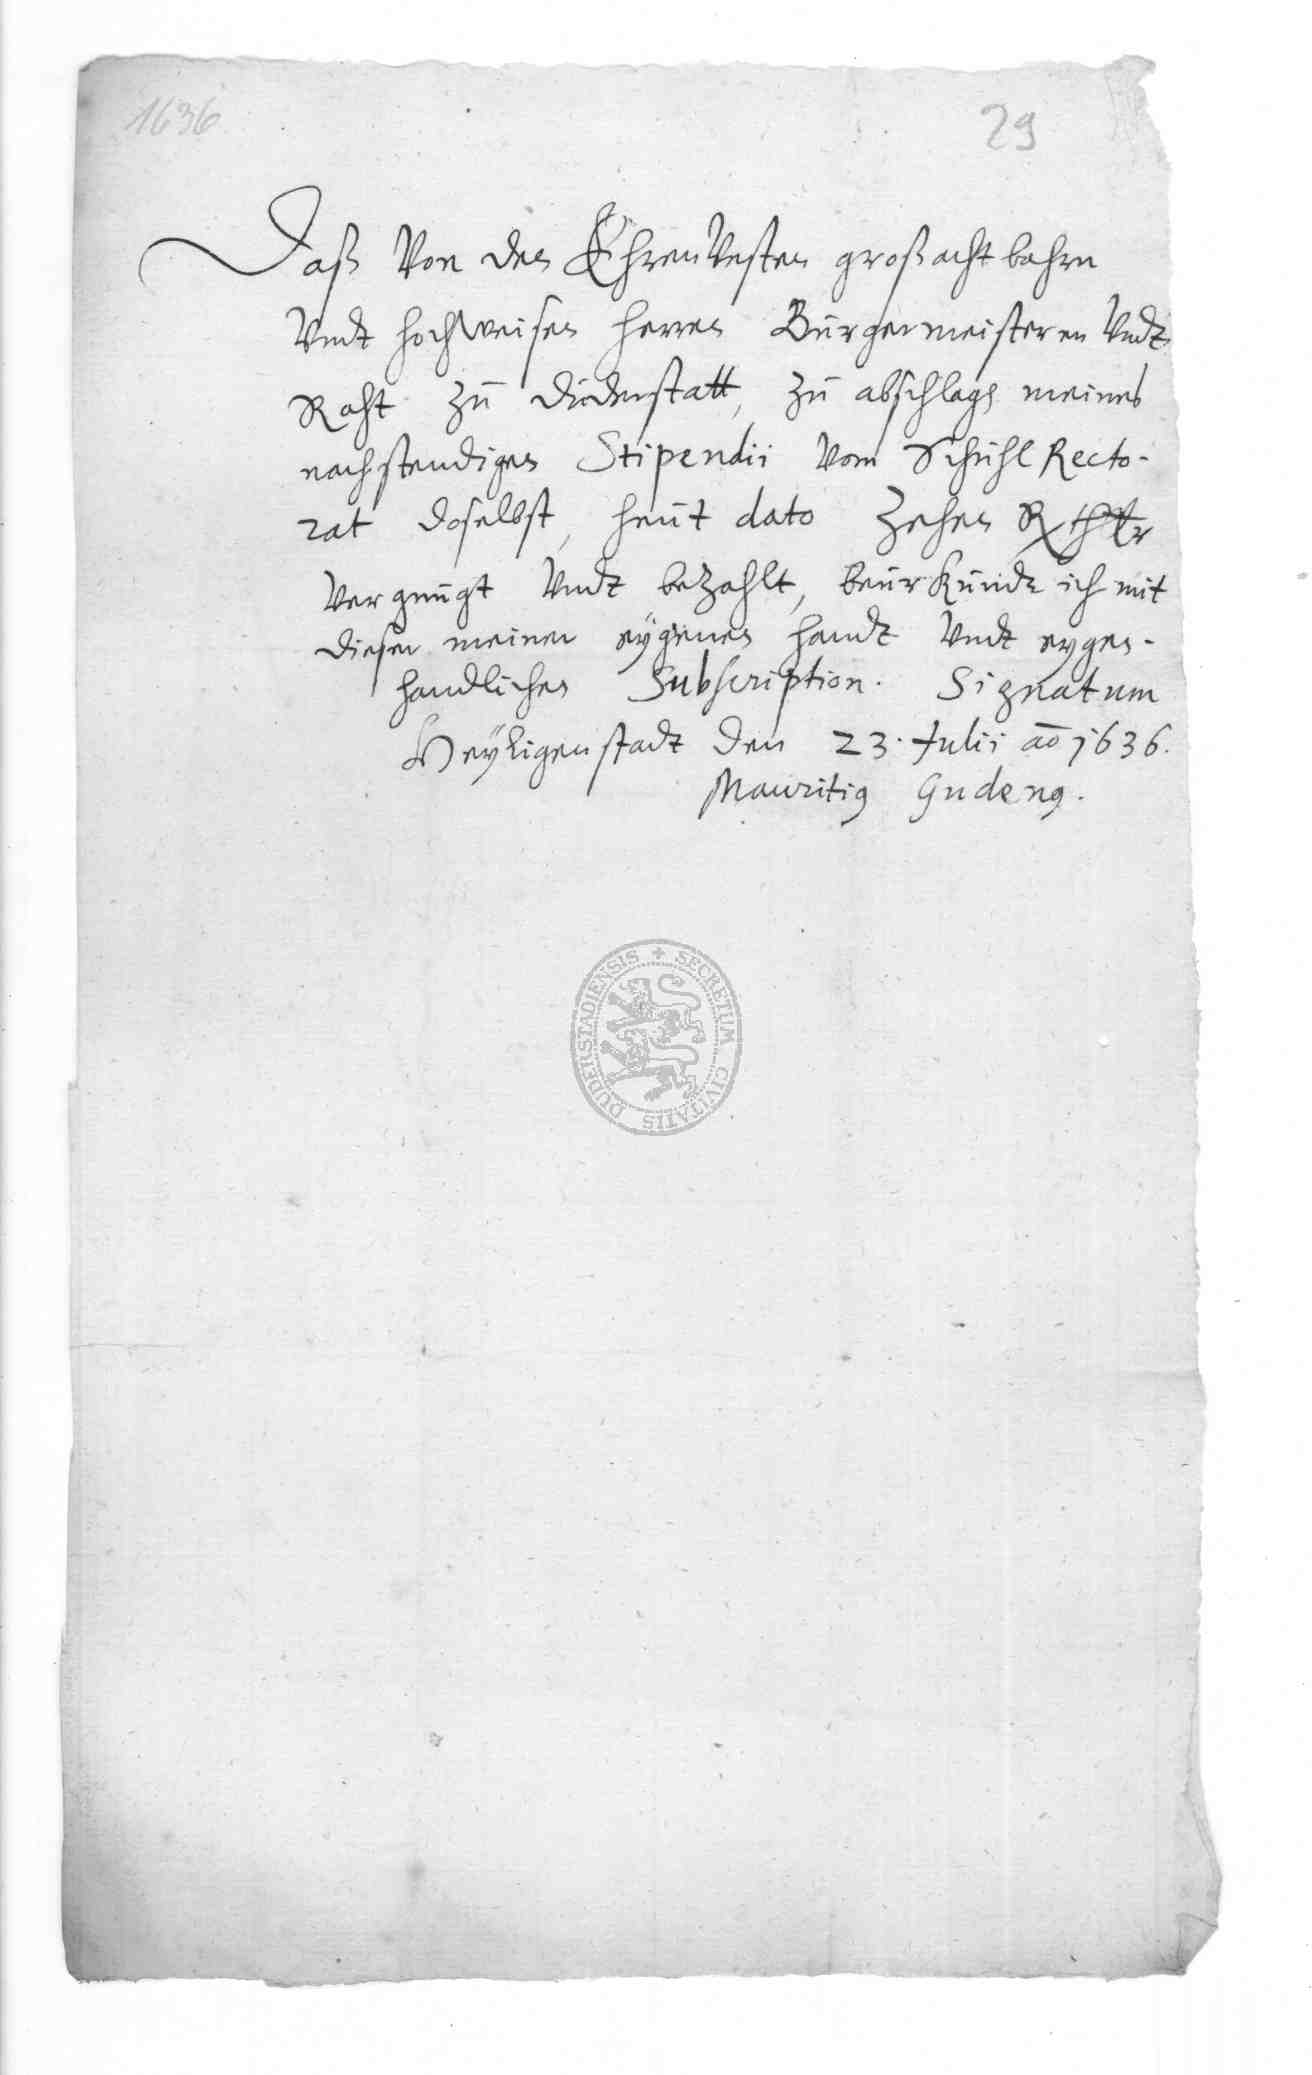 1636
29
Daß Von den EhrenVesten großachtbahrn
Vndt hochweisen herren Bürgermeisteren Vndt
Raht zu duderstatt, zu abschlagh meines
nachstendigen Stipendii Vom Schuhl Recto-
rat doselbst, heut dato Zehen Rthlr
Vergnugt Vndt bezahlt, beurkundt ich mit
dieser meiner eÿgenen handt Vndt eygen-
handlichen Subscription. Signatum
Heÿligenstadt den 23. Julii ao 1636.
Mauritig Gudeng.
SECRETUM CIVITATIS DUDERSTADIENSIS